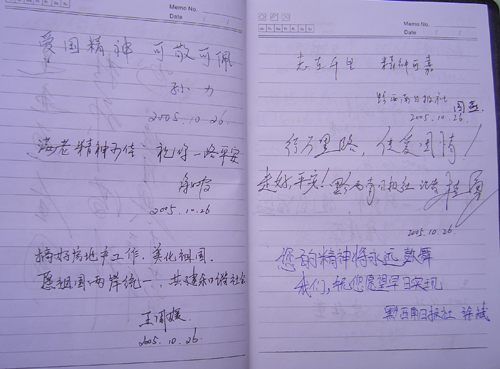 Memo No.
Date
爱国精神 可敬可佩
2005.10.26
老精神可佳: 祝你一路平安
2005.10.26
搞好 工作, 美化祖国.
愿祖国两岸统一, 共建和谐社会
王国
2005.10.26
Memo No.
Date
志在千里 精神可嘉
黔西南日报社 周燕
2005.10.26
行万里路 传爱国情!
走好,平安! 黔西南日报社 记者
2005.10.26
您的精神将永远鼓舞
我们, 祝您愿望早日实现
黔西南日报社